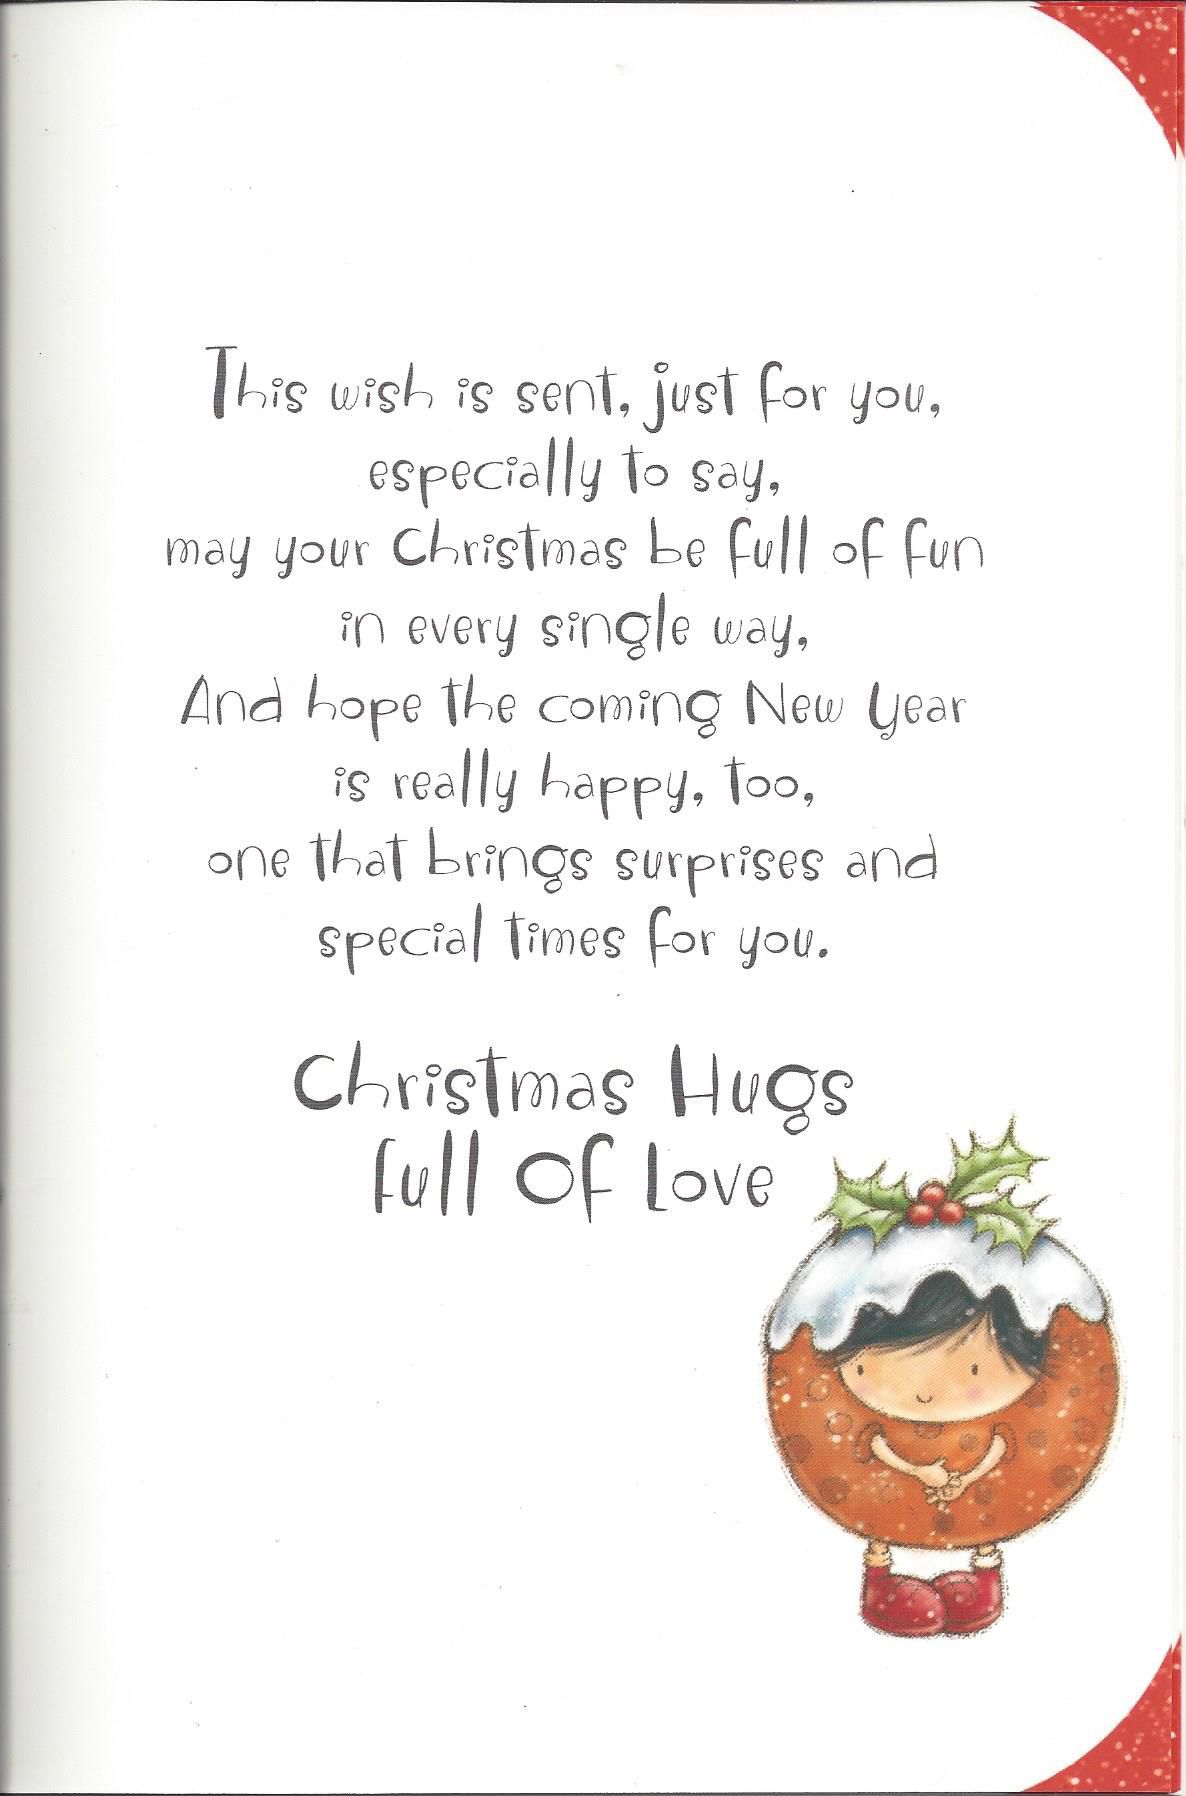 This wish is sent, just for you,
especially to say,
may your Christmas be full of fun
in every single way,
And hope the coming New Year
is really happy, too,
one that brings surprises and
special times for you.
Christmas Hugs
full Of Love